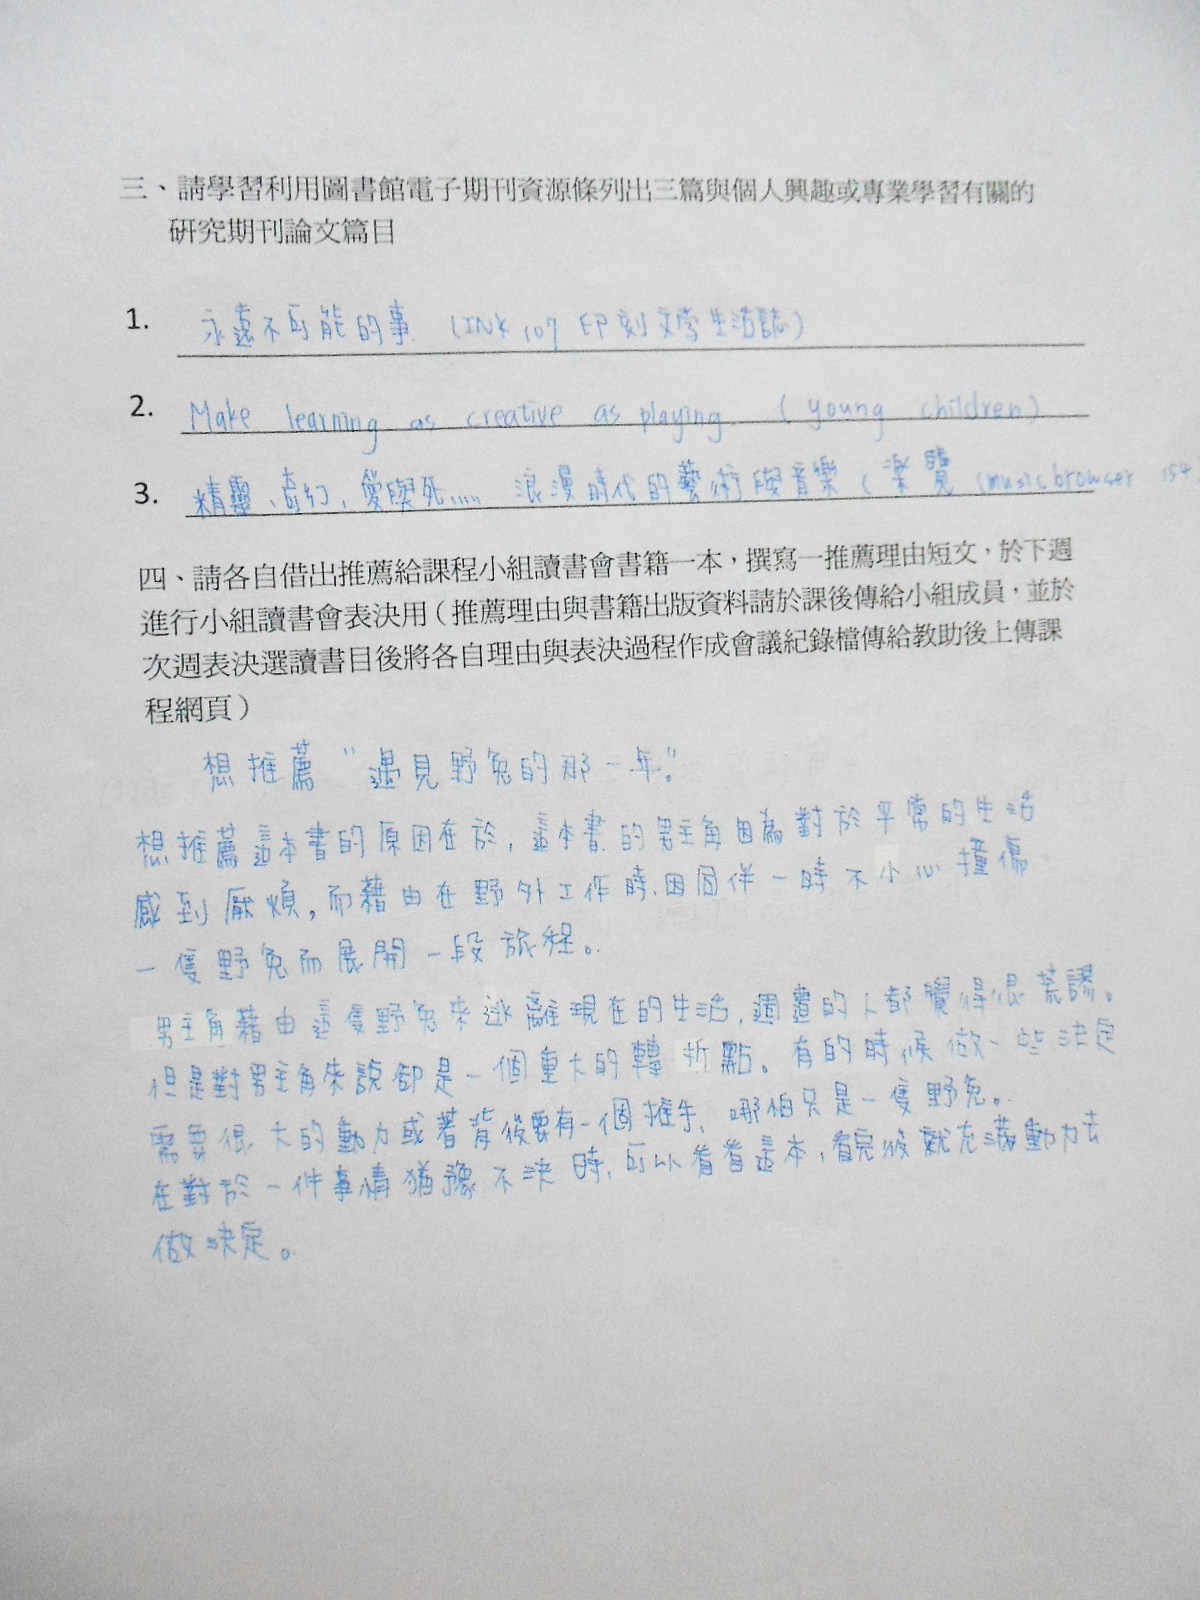 三、請學習利用圖書館電子期刊資源條列出三篇與個人興趣或專業學習有關的
研究期刊論文篇目
1. 永遠不可能的事 (INK 107 印刻文學生活誌)
2. Make learning as creative as playing. (young children)
3. 精靈、奇幻、愛與死..... 浪漫時代的藝術與音樂 (樂覽 (musicbrowser 154)
四、請各自借出推薦給課程小組讀書會書籍一本，撰寫一推薦理由短文，於下週
進行小組讀書會表決用（推薦理由與書籍出版資料請於課後傳給小組成員，並於
次週表決選讀書目後將各自理由與表決過程作成會議紀錄檔傳給教助後上傳課
程網頁）
想推薦“遇見野兔的那一年”。
想推薦這本書的原因在於，這本書的男主角因為對於平常的生活
感到厭煩，而藉由在野外工作時，因同伴一時不小心撞傷
一隻野兔而展開一段旅程。
男主角藉由這隻野兔來逃離現在的生活，週遭的人都覺得很荒謬。
但是對男主角來說卻是一個重大的轉折點。有的時候做一些決定
需要很大的動力或著背後要有一個推手，哪怕只是一隻野兔。
在對於一件事情猶豫不決時，可以看看這本，看完後就充滿動力去
做決定。